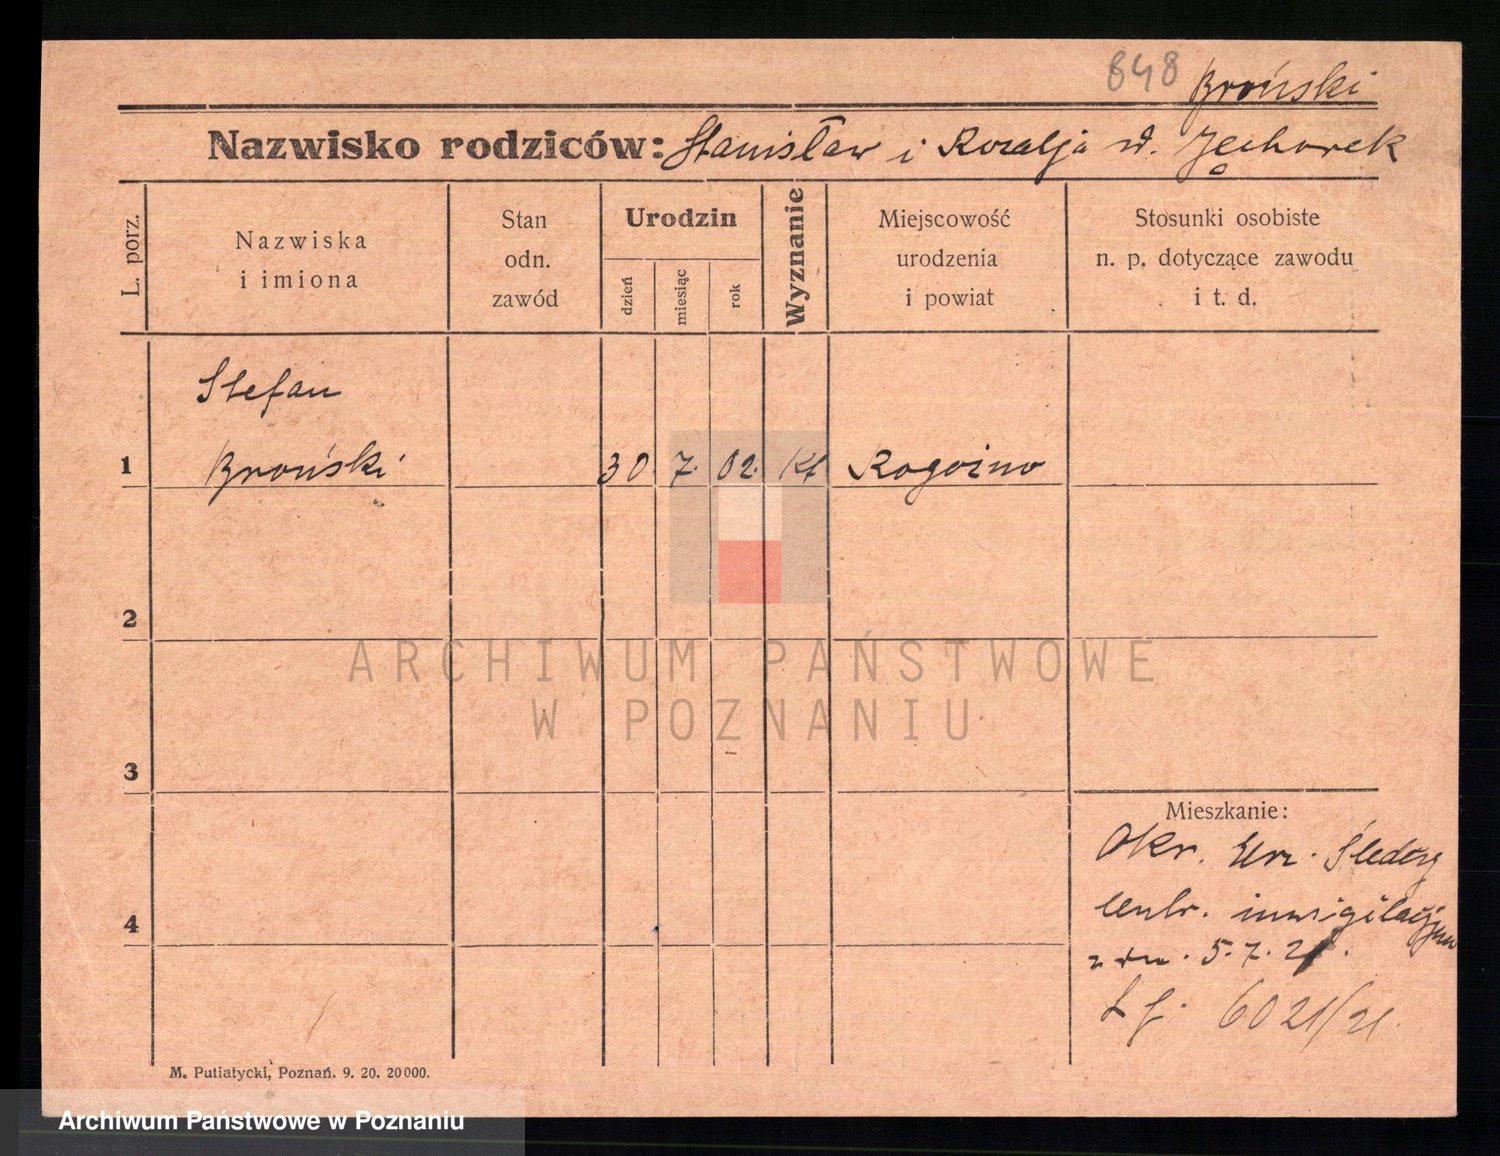 848 Broński
Nazwisko rodziców: Stanisław i Rozalja z d. Jęchorek
L. porz.
Nazwiska
i imiona
Stan
odn.
zawód
Urodzin
dzień
miesiąc
rok
Wyznanie
Miejscowość
urodzenia
i powiat
Stosunki osobiste
n. p. dotyczące zawodu
i t. d.
Stefan
1 Broński 30 7. 02. kt Rogoźno
2
ARCHIWUM PAŃSTWOWE
W POZNANIU
3
Mieszkanie:
Okr. Urz. Śledczy
centr. inwigilacyjna
z dn. 5.7.21.
4
6021/21.
M. Putiatycki, Poznań. 9. 20. 20000.
Archiwum Państwowe w Poznaniu